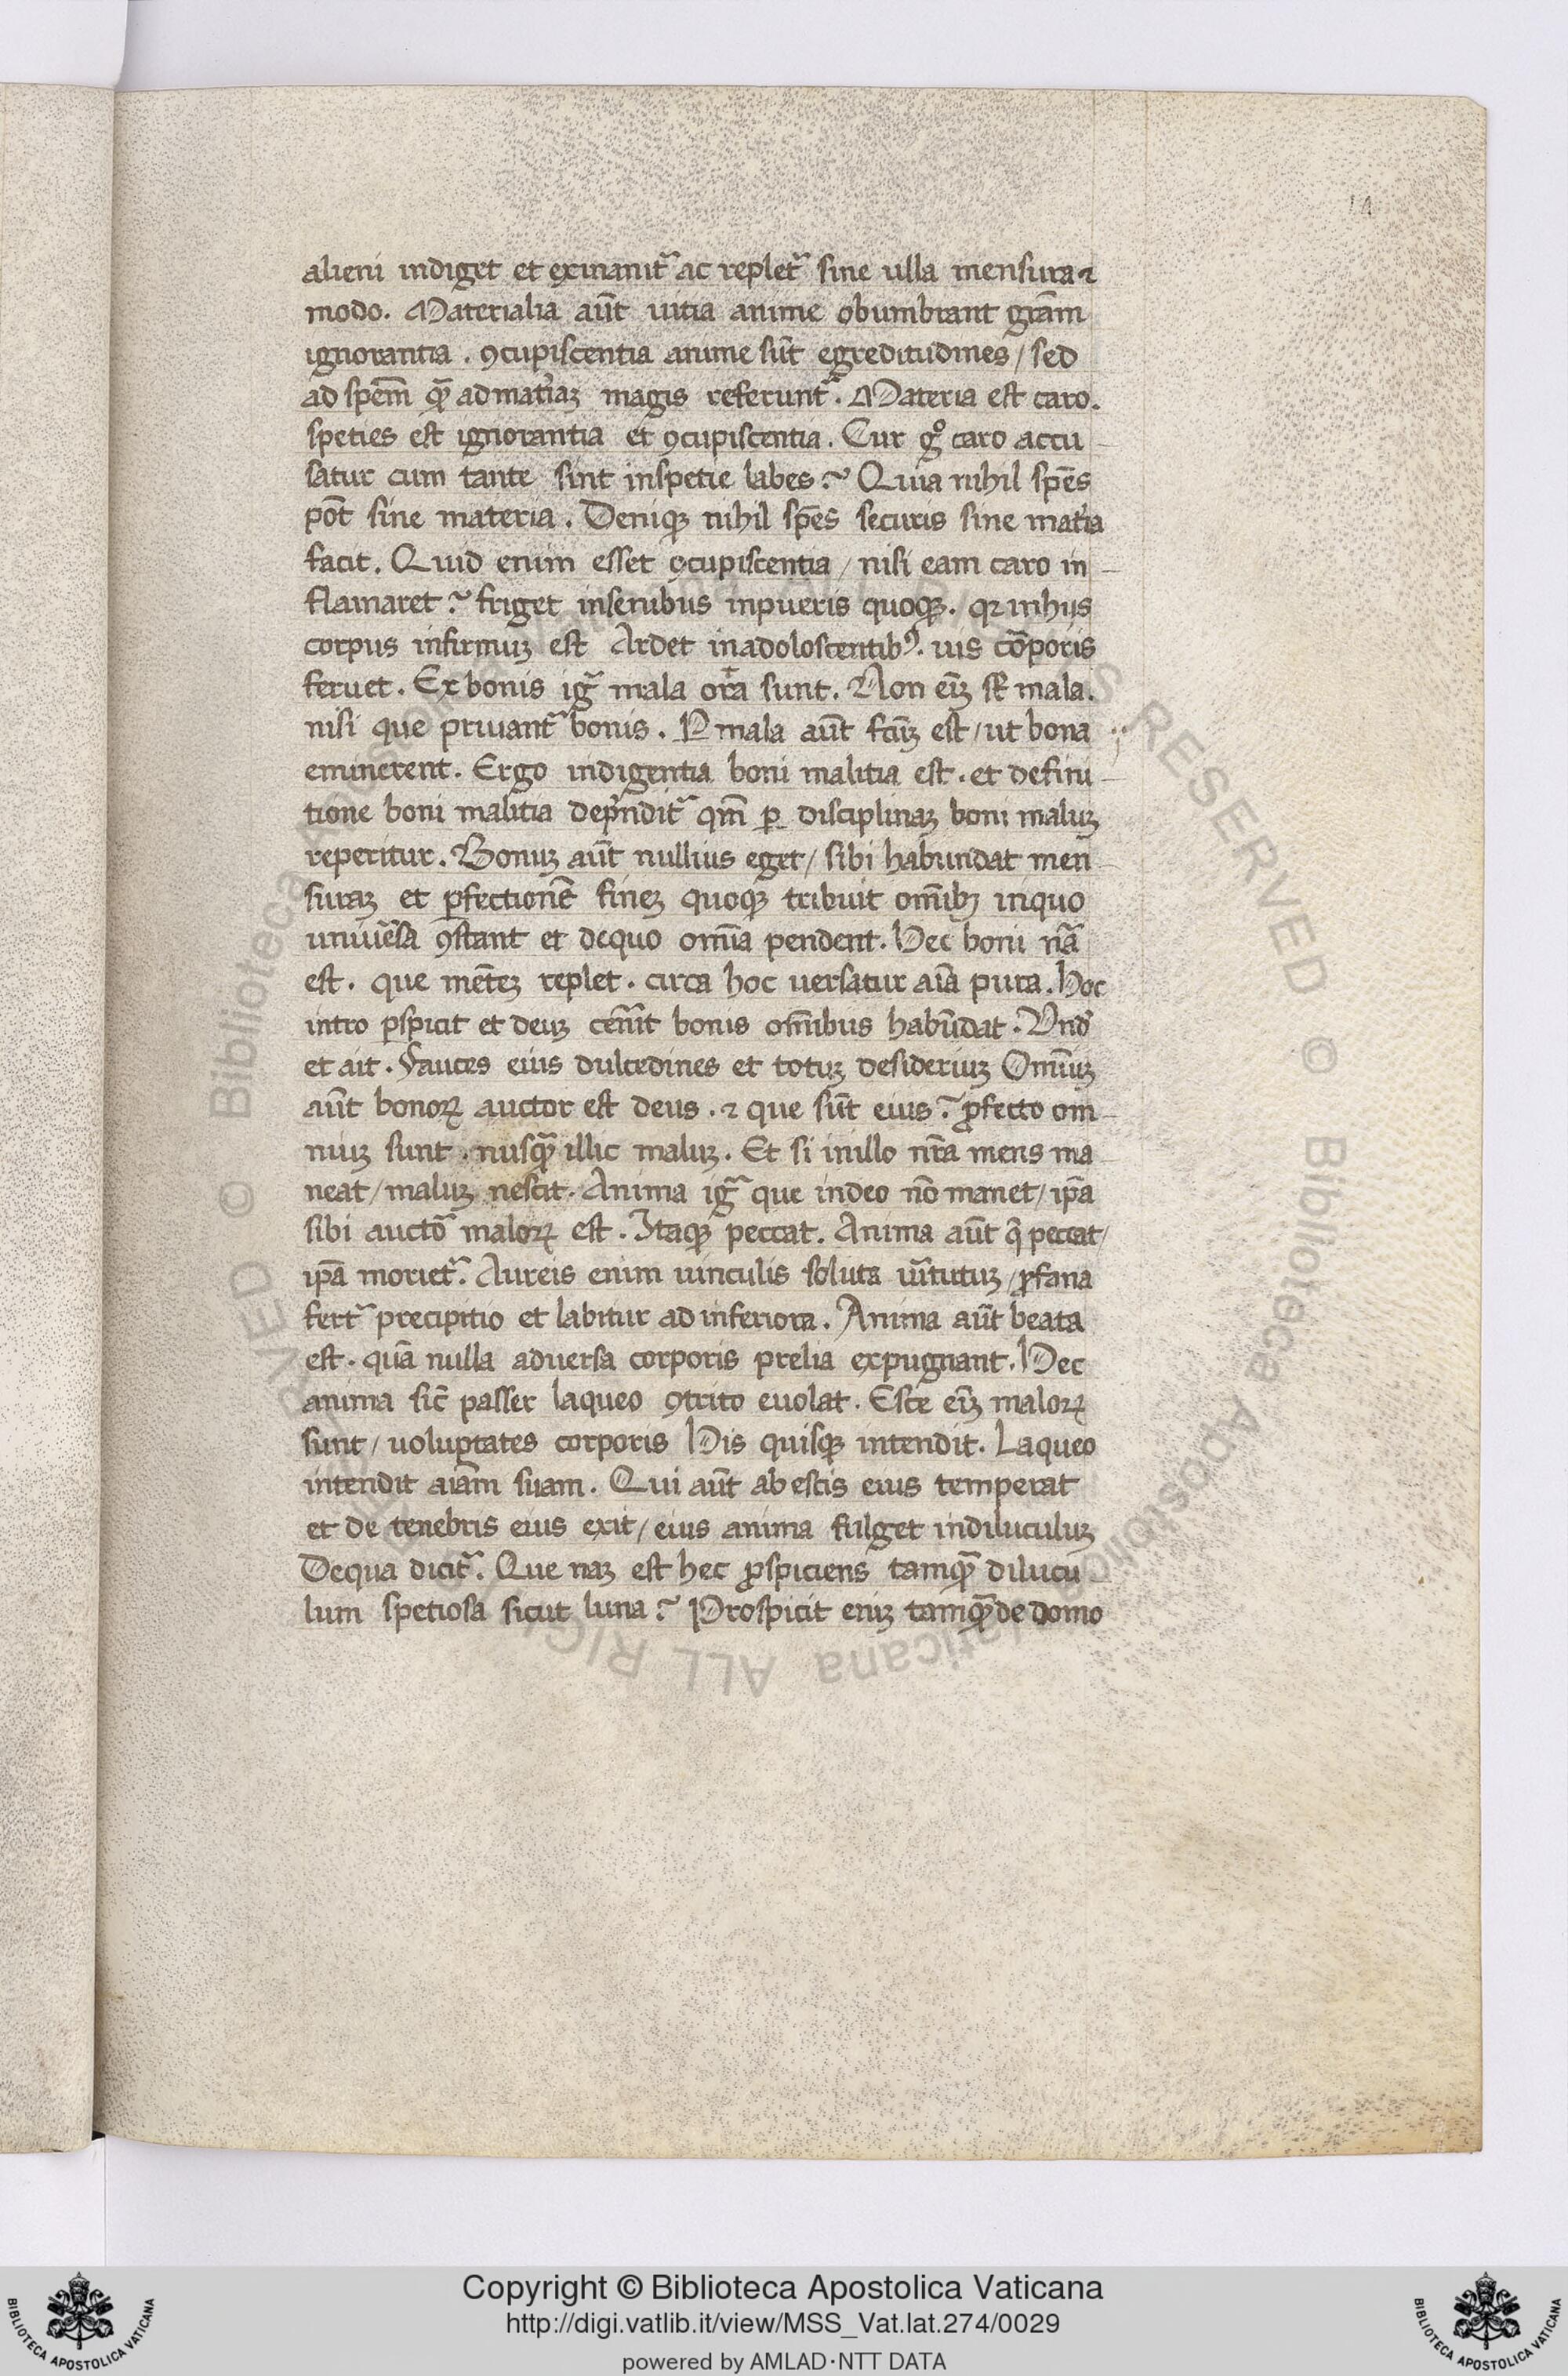 14
alieni indiget et exinanit᷑ ac replet᷑ sine ulla mensura ⁊
modo. Materialia aūt uitia anime obumbrant gr̄am
ignorantia. ꝯcupiscentia anime sūt egreditudines / sed
ad spēm qᷓ admat'iaꝫ magis referunt᷑. Materia est caro.
speties est ignorantia et ꝯcupiscentia. Cur gͦ caro accu
satur cum tante sint inspetie labes? Quia nihil spēs
pōt sine materia. Deniqꝫ nihil spēs securis sine mat'ia
facit. Quid enim esset ꝯcupiscentia / nisi eam caro in
flamaret? friget insenibus inpueris quoqꝫ. qꝛ inhijs
corpus infirmuꝫ est Ardet inadoloscentibꝰ. uis cōporis
feruet. Ex bonis igᷓ mala orta sunt. Non eīꝫ st̄ mala.
nisi que priuant᷑ bonis. P mala aūt fcūꝫ est / ut bona
eminerent. Ergo indigentia boni malitia est. et defini
tione boni malitia dep̄ndit᷑ qm̄ ꝑ disciplinaꝫ boni maluꝫ
reperitur. Bonuꝫ aūt nullius eget / sibi habundat men
suraꝫ et ꝑfectionē fineꝫ quoqꝫ tribuit om̄ibꝫ inquo
uniūsa ꝯstant et dequo omīa pendent. Hec boni nᷓa
est. que mēteꝫ replet. circa hoc uersatur aīa pura. Hoc
intro ꝑspicit et deuꝫ cernit bonis om̄ibus habūdat. Vnd'
et ait. Fauces eius dulcedines et totuꝫ desideriuꝫ Omīuꝫ
aūt bonoꝝ auctor est deus. ⁊ que sūt eius? ꝓfecto om
niuꝫ sunt. nusqᷓ illic maluꝫ. Et si inillo nr̄a mens ma
neat / maluꝫ nescit. Anima igᷓ que indeo nō manet / ip̄a
sibi auctō maloꝝ est. Itaqꝫ peccat. Anima aūt q̄ peccat /
ip̄a moriet᷑. Aureis enim uinculis soluta uīrtutuꝫ / ꝓfana
fert᷑ precipitio et labitur ad inferiora. Anima aūt beata
est. quā nulla aduersa corporis prelia expugnant. Hec
anima sic̄ passer laqueo ꝯtrito euolat. Esce eīꝫ maloꝝ
sunt / uoluptates corporis His quisqꝫ intendit. Laqueo
intendit aīam suam. Qui aūt ab escis eius temperat
et de tenebris eius exit / eius anima fulget indiluculuꝫ
Dequa dicit᷑. Que naꝫ est hec ꝓspiciens tamqᷓ dilucu
lum spetiosa sicut luna? Prospicit eniꝫ tamqᷓ de domo
Copyright © Biblioteca Apostolica Vaticana
http://digi.vatlib.it/view/MSS_Vat.lat.274/0029
powered by AMLAD·NTT DATA
BIBLIOTECA APOSTOLICA VATICANA
BIBLIOTECA APOSTOLICA VATICANA
© Biblioteca Apostolica Vaticana ALL RIGHTS RESERVED © Biblioteca Apostolica Vaticana ALL RIGHTS RESERVED